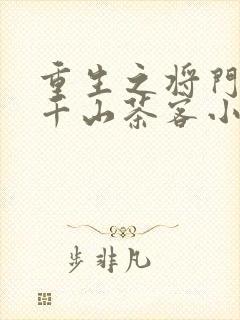 重生之将门
千山茶客小
步非凡